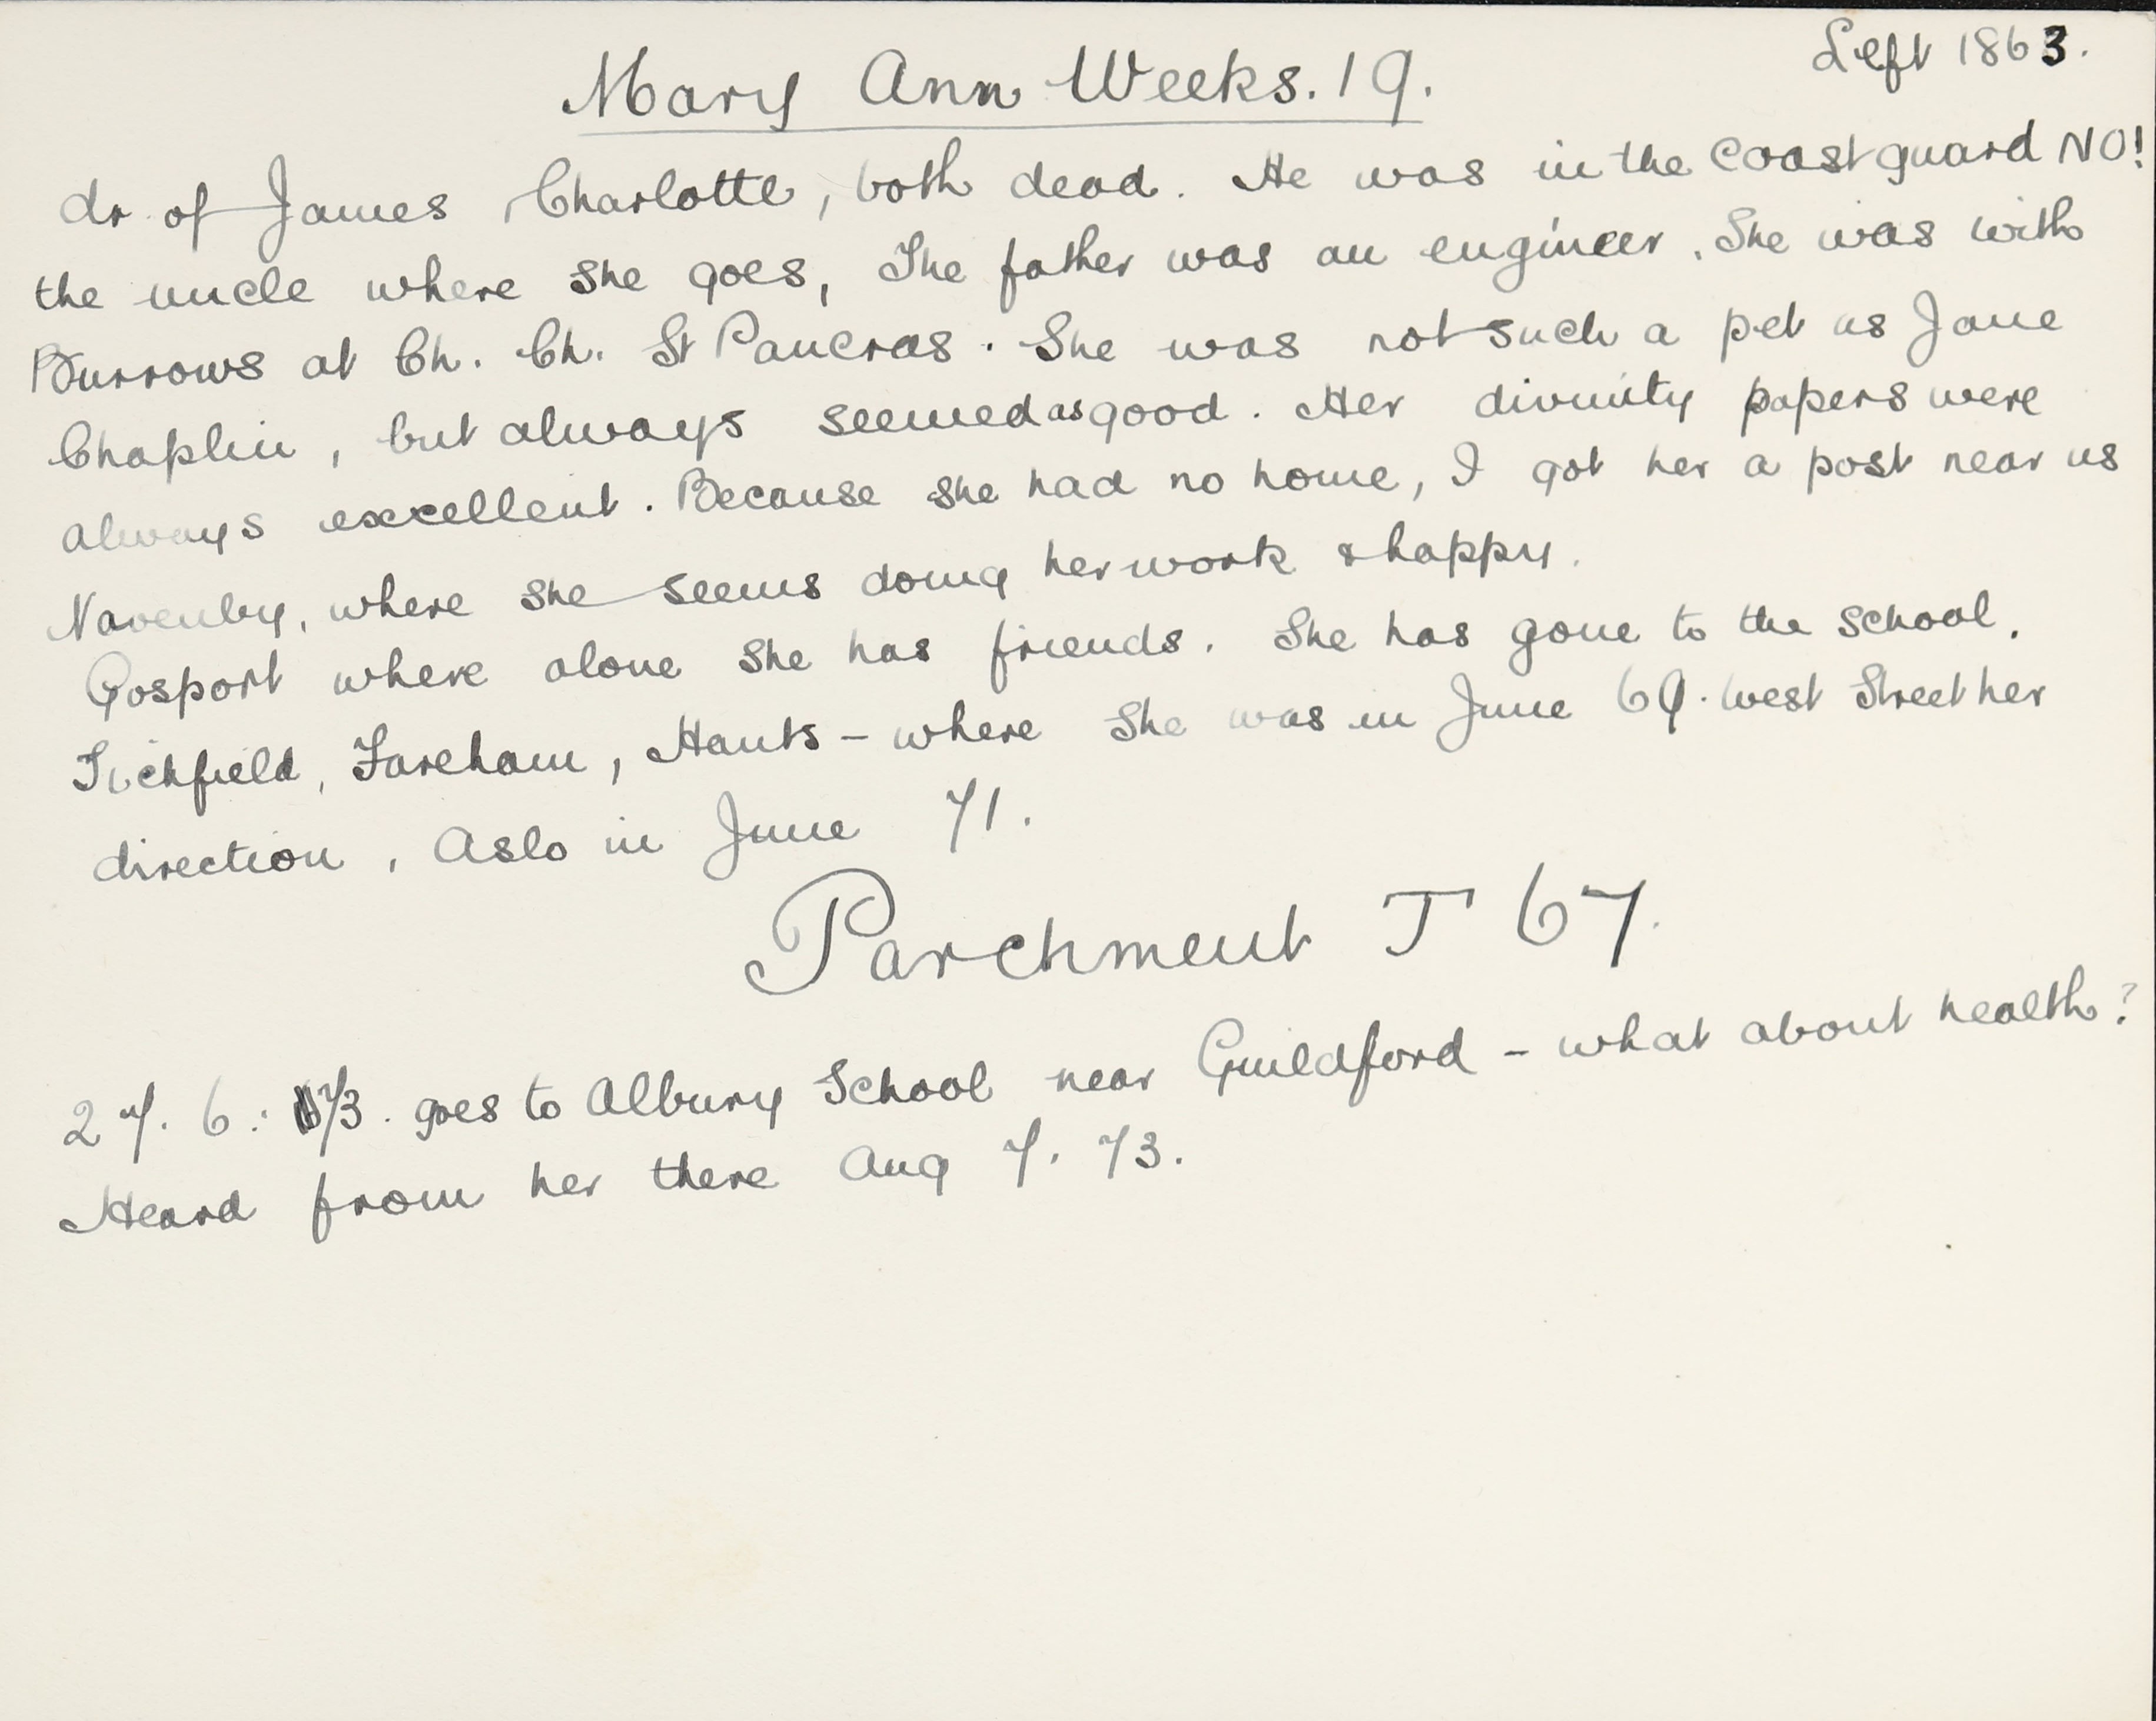 Left 1863.
Mary Ann Weeks. 19.
dr. of James, Charlotte, both dead. He was in the Coastguard NO!
the uncle where she goes, The father was an engineer. She was with
Burrows at Ch. Ch. St Pancras. She was not such a pet as Jane
Chaplin, but always seemed as good. Her divinity papers were
always excellent. Because she had no home, I got her a post near us
Navenby, where she seems doing her work & happy.
Gosport where alone she has friends. She has gone to the school.
Tichfield, Fareham, Hants - where She was in June 69. West Street her
direction, Aslo in June 71.
Parchment T 67.
27. 6: 73. goes to Albury School near Guildford - what about health?
Heard from her there Aug 7. 73.